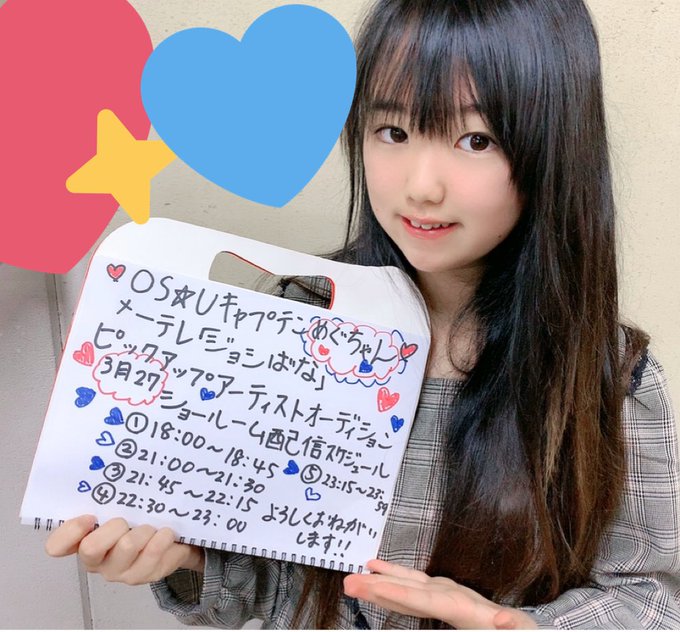 OS☆Uキャプテンめぐちゃん
メーテレ「ジョシばな」
ピックアップアーティストオーディション
3月27 ショールーム配信スケジュール
①18:00〜18:45
②21:00〜21:30
③21:45〜22:15
④22:30〜23:00
⑤23:15〜23:59
よろしくおねがい
します!!